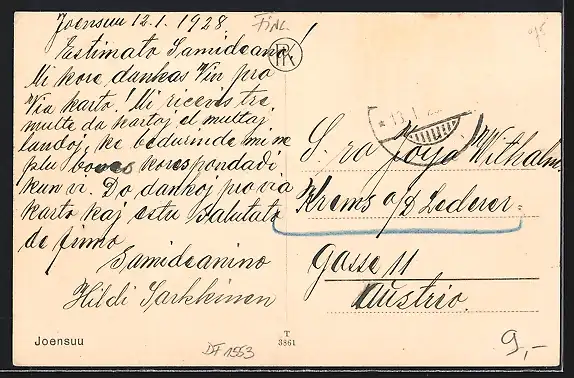 Joensuu 12.1.1928.
FINL.
Estimata Samideano!
Mi kore dankas Vin pro
Via karto! Mi ricevis tre
multe da kartoj el multaj
landoj, ke bedurinde mi ne
plu povas korespondadi
kun vi. Do dankoj pro via
karto kaj estu salutata
de finno
Samideanino
Hildi Sarkkinen
S-ro Josef Withalm
Krems a/D Lederer-
Gasse 11
Austrio.
Joensuu
T
3861
DF 1553
9,-